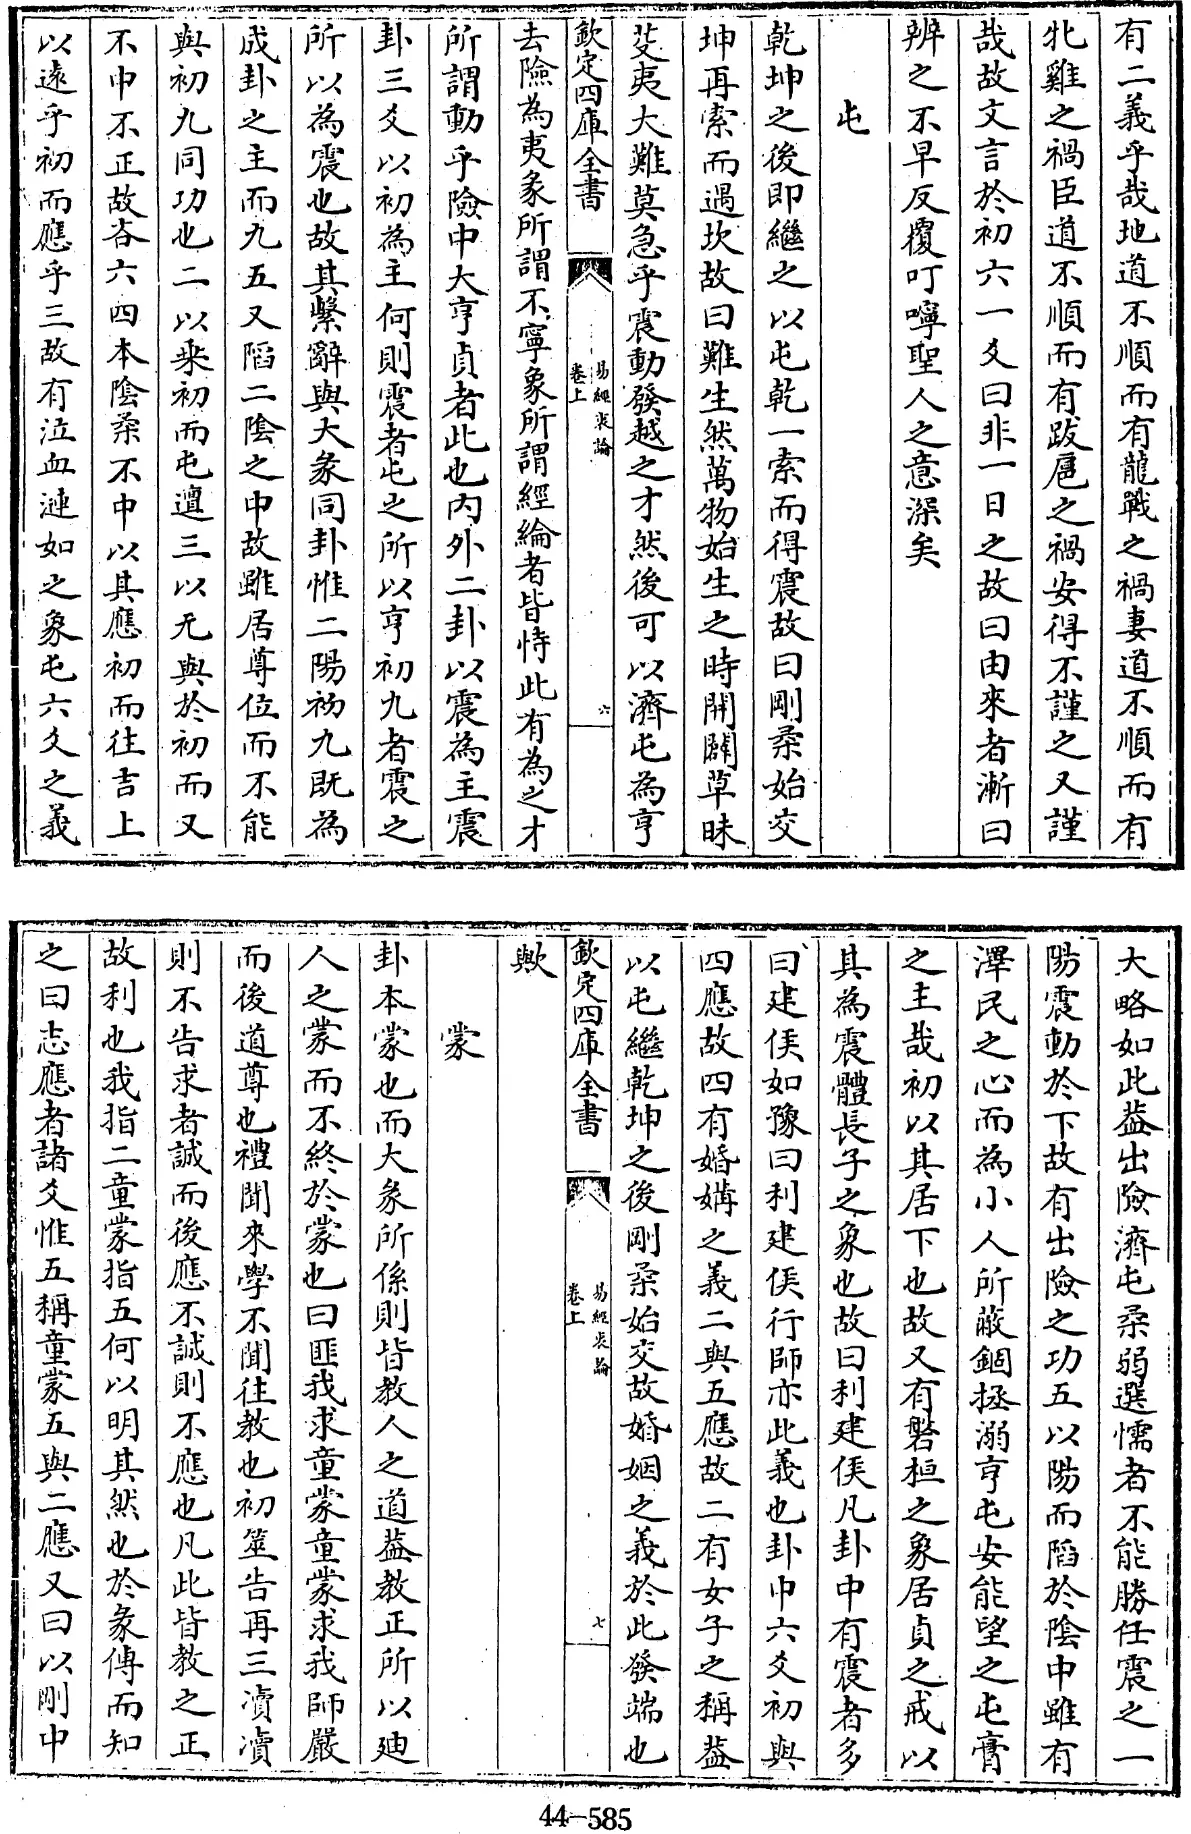 有二義乎哉地道不順而有龍戰之禍妻道不順而有
牝雞之禍臣道不順而有跋扈之禍安得不謹之又謹
哉故文言於初六一爻曰非一日之故曰由來者漸曰
辨之不早反覆叮嚀聖人之意深矣
屯
乾坤之後即繼之以屯乾一索而得震故曰剛柔始交
坤再索而遇坎故曰難生然萬物始生之時開闢草昧
芟夷大難莫急乎震動發越之才然後可以濟屯為亨
欽定四庫全書
易經衷論
卷上
六
去險為夷彖所謂不寧象所謂經綸者皆恃此有為之才
所謂動乎險中大亨貞者此也内外二卦以震為主震
卦三爻以初為主何則震者屯之所以亨初九者震之
所以為震也故其繫辭與大彖同卦惟二陽初九既為
成卦之主而九五又陷二陰之中故雖居尊位而不能
與初九同功也二以乘初而屯邅三以无與於初而又
不中不正故吝六四本陰柔不中以其應初而往吉上
以遠乎初而應乎三故有泣血漣如之象屯六爻之義
大略如此葢出險濟屯柔弱選懦者不能勝任震之一
陽震動於下故有出險之功五以陽而陷於陰中雖有
澤民之心而為小人所蔽錮拯溺亨屯安能望之屯膏
之主哉初以其居下也故又有磐桓之象居貞之戒以
其為震體長子之象也故曰利建侯凡卦中有震者多
曰建侯如豫曰利建侯行師亦此義也卦中六爻初與
四應故四有婚媾之義二與五應故二有女子之稱葢
以屯繼乾坤之後剛柔始交故婚姻之義於此發端也
欽定四庫全書
易經衷論
卷上
七
歟
蒙
卦本蒙也而大彖所係則皆教人之道葢教正所以迪
人之蒙而不終於蒙也曰匪我求童蒙童蒙求我師嚴
而後道尊也禮聞來學不聞往教也初筮告再三瀆瀆
則不告求者誠而後應不誠則不應也凡此皆教之正
故利也我指二童蒙指五何以明其然也於彖傳而知
之曰志應者諸爻惟五稱童蒙五與二應又曰以剛中
44-585